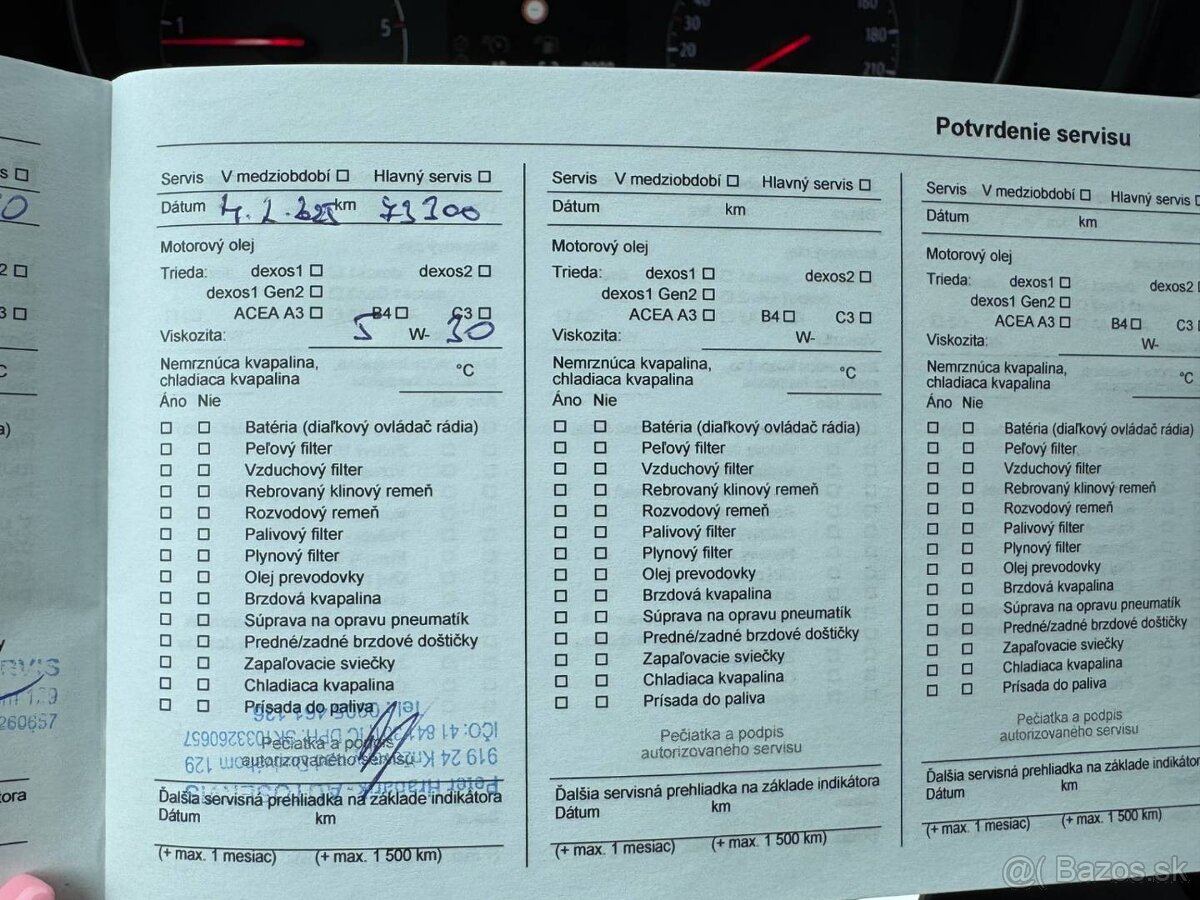 5
40
30
20
160
180
210
Potvrdenie servisu
s
0
2
3
C
a)
y
RVIS
129
260657
tora
Servis V medziobdobí Hlavný servis
Dátum 4.2.2025 km 73100
Motorový olej
Trieda: dexos1 dexos2
dexos1 Gen2
ACEA A3 B4 C3
Viskozita: 5 W- 30
Nemrznúca kvapalina, °C
chladiaca kvapalina
Áno Nie
Batéria (diaľkový ovládač rádia)
Peľový filter
Vzduchový filter
Rebrovaný klinový remeň
Rozvodový remeň
Palivový filter
Plynový filter
Olej prevodovky
Brzdová kvapalina
Súprava na opravu pneumatík
Predné/zadné brzdové doštičky
Zapaľovacie sviečky
Chladiaca kvapalina
Prísada do paliva
Pečiatka a podpis
autorizovaného servisu
AUTOSERVIS
919 24 129
IČO: 41 IČ DPH: SK1033260657
Tel.:
Ďalšia servisná prehliadka na základe indikátora
Dátum km
(+ max. 1 mesiac) (+ max. 1 500 km)
Servis V medziobdobí Hlavný servis
Dátum km
Motorový olej
Trieda: dexos1 dexos2
dexos1 Gen2
ACEA A3 B4 C3
Viskozita: W-
Nemrznúca kvapalina, °C
chladiaca kvapalina
Áno Nie
Batéria (diaľkový ovládač rádia)
Peľový filter
Vzduchový filter
Rebrovaný klinový remeň
Rozvodový remeň
Palivový filter
Plynový filter
Olej prevodovky
Brzdová kvapalina
Súprava na opravu pneumatík
Predné/zadné brzdové doštičky
Zapaľovacie sviečky
Chladiaca kvapalina
Prísada do paliva
Pečiatka a podpis
autorizovaného servisu
Ďalšia servisná prehliadka na základe indikátora
Dátum km
(+ max. 1 mesiac) (+ max. 1 500 km)
Servis V medziobdobí Hlavný servis
Dátum km
Motorový olej
Trieda: dexos1 dexos2
dexos1 Gen2
ACEA A3 B4 C3
Viskozita: W-
Nemrznúca kvapalina, °C
chladiaca kvapalina
Áno Nie
Batéria (diaľkový ovládač rádia)
Peľový filter
Vzduchový filter
Rebrovaný klinový remeň
Rozvodový remeň
Palivový filter
Plynový filter
Olej prevodovky
Brzdová kvapalina
Súprava na opravu pneumatík
Predné/zadné brzdové doštičky
Zapaľovacie sviečky
Chladiaca kvapalina
Prísada do paliva
Pečiatka a podpis
autorizovaného servisu
Ďalšia servisná prehliadka na základe indikátora
Dátum km
(+ max. 1 mesiac) (+ max. 1 500 km)
@( Bazos.sk